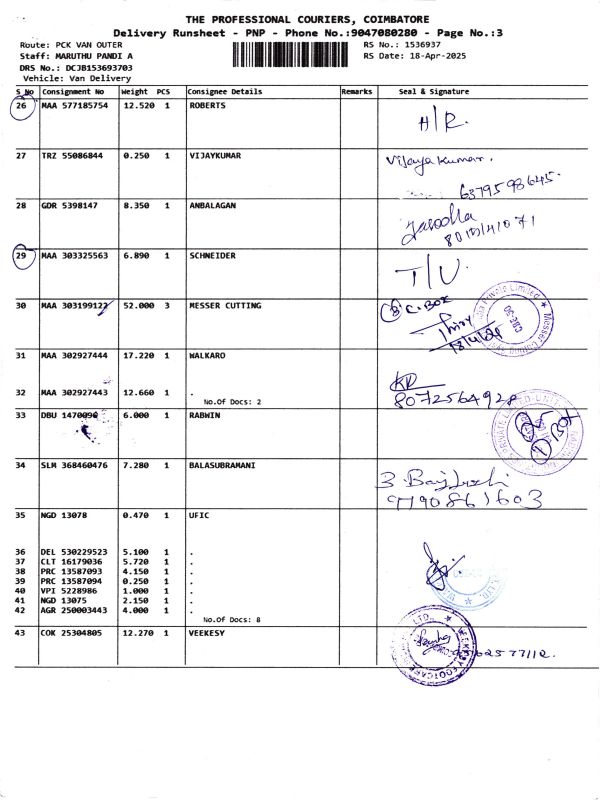 THE PROFESSIONAL COURIERS, COIMBATORE
Delivery Runsheet - PNP - Phone No.:9047080280 - Page No.:3
Route: PCK VAN OUTER
RS No.: 1536937
Staff: MARUTHU PANDI A
RS Date: 18-Apr-2025
DRS No.: DCJB153693703
Vehicle: Van Delivery
S No Consignment No Weight PCS Consignee Details Remarks Seal & Signature
26 MAA 577185754 12.520 1 ROBERTS
H/R.
27 TRZ 55086844 0.250 1 VIJAYKUMAR
Vijaya kumar.
6379598645.
28 GDR 5398147 8.350 1 ANBALAGAN
Yasodha
29 MAA 303325563 6.890 1 SCHNEIDER
T/U.
30 MAA 303199122 52.000 3 MESSER CUTTING
3 C. BOX
31 MAA 302927444 17.220 1 WALKARO
32 MAA 302927443 12.660 1 .
No.Of Docs: 2
8072564928
33 DBU 1470090 6.000 1 RABWIN
1 BOX
34 SLM 368460476 7.280 1 BALASUBRAMANI
9790861603
35 NGD 13078 0.470 1 UFIC
36 DEL 530229523 5.100 1 .
37 CLT 16179036 5.720 1 .
38 PRC 13587093 4.150 1 .
39 PRC 13587094 0.250 1 .
40 VPI 5228986 1.000 1 .
41 NGD 13075 2.150 1 .
42 AGR 250003443 4.000 1 .
No.Of Docs: 8
43 COK 25304805 12.270 1 VEEKESY